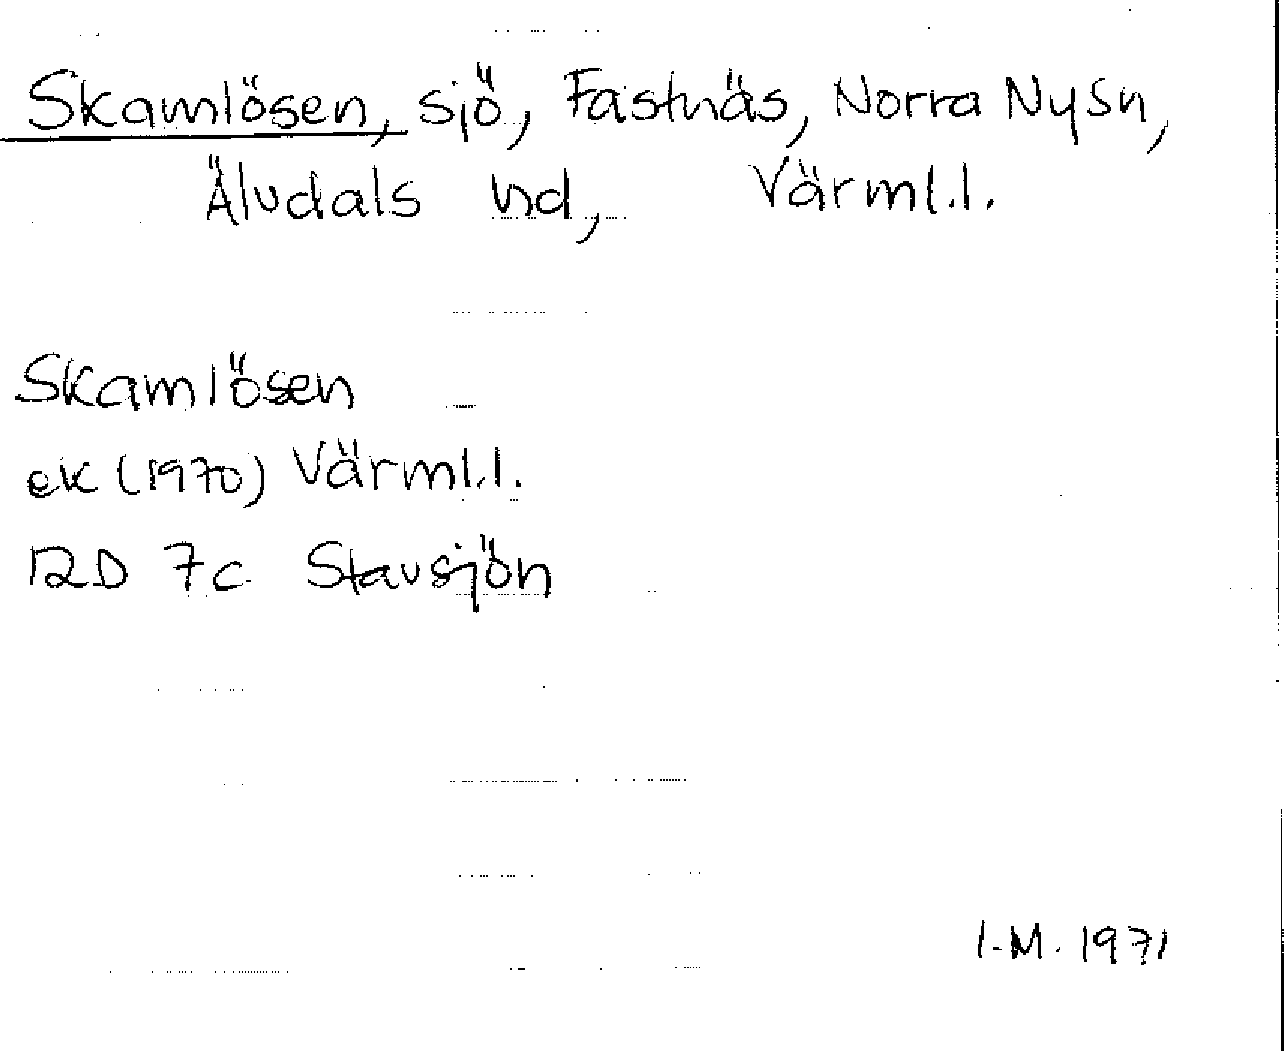 Skamlösen, sjö, Fastnäs, Norra Ny sn,
Älvdals hd, Värml.l.
Skamlösen
ek (1970) Värml.l.
12D 7c Stavsjön
I.M. 1971